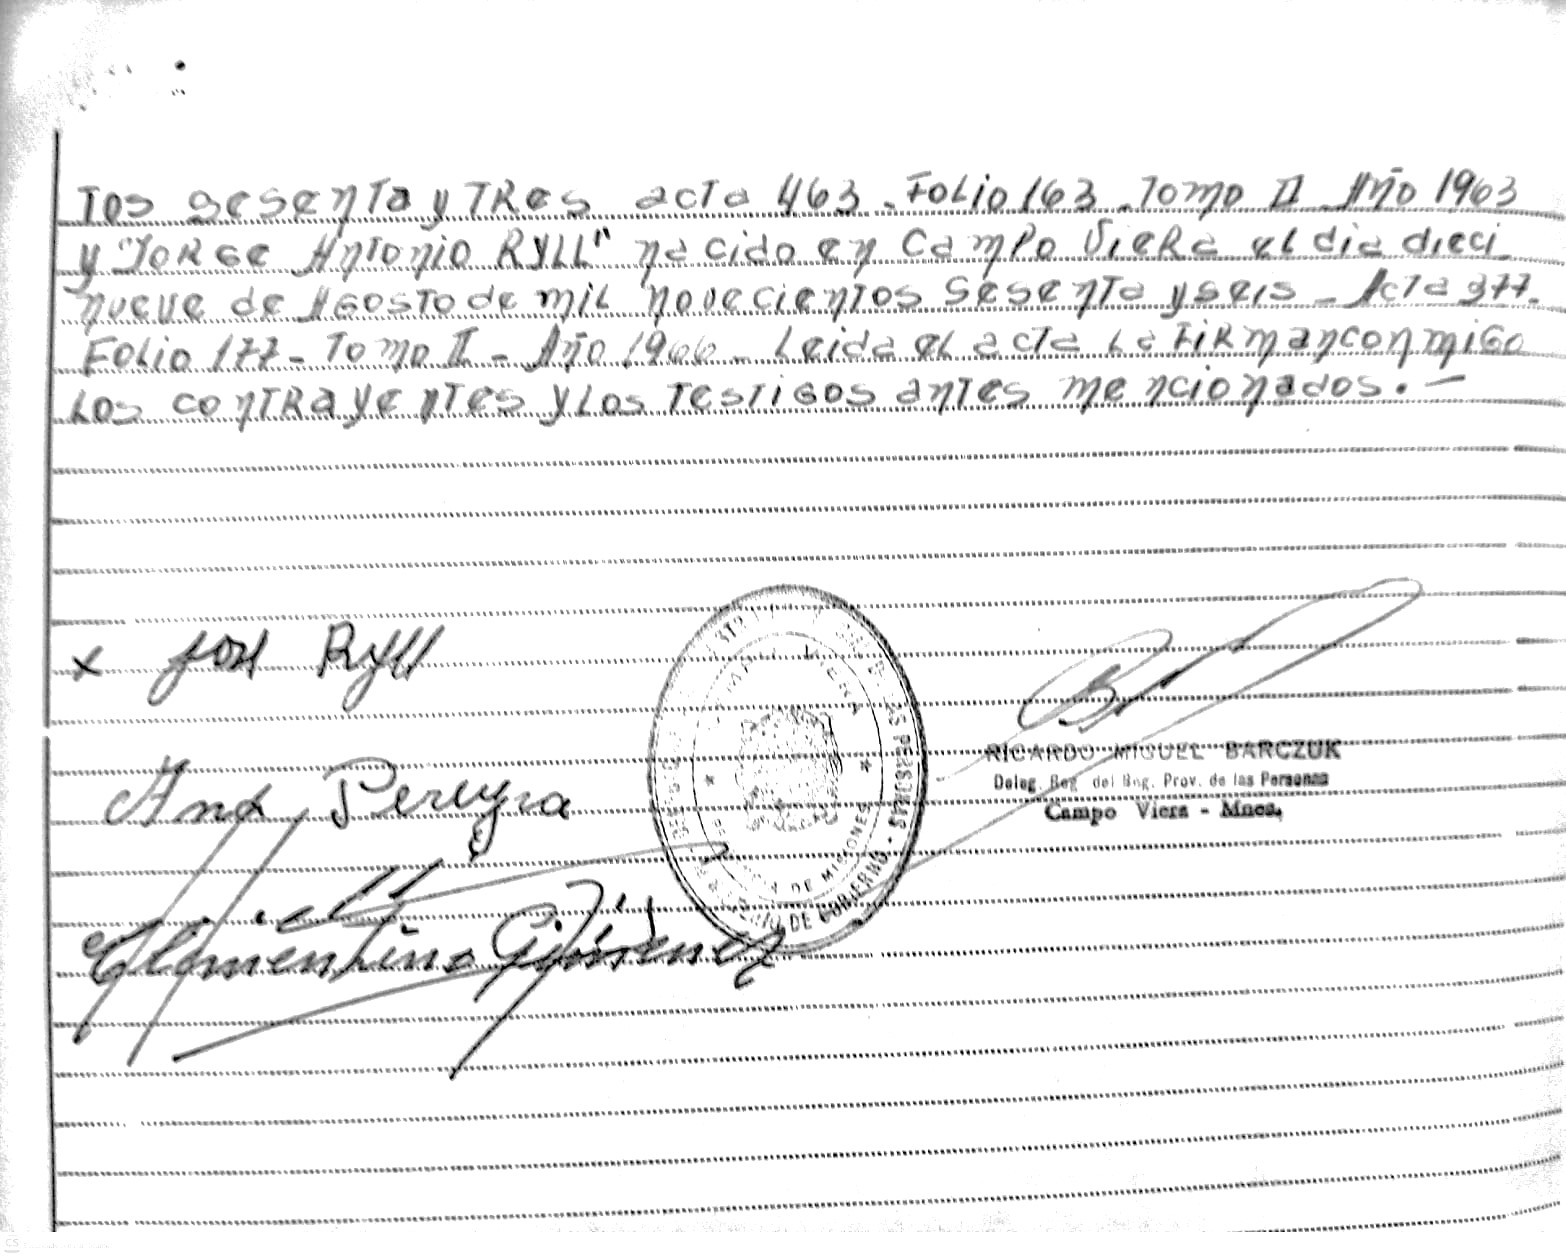 Tos sesenta y tres acta 463 - Folio 163 - Tomo II - Año 1963
y "Jorge Antonio RYLL" nacido en Campo Viera el dia dieci
nueve de Agosto de mil novecientos sesenta y seis - Acta 377 -
Folio 177 - Tomo II - Año 1966 - Leida el acta la firman conmigo
los contrayentes y los testigos antes mencionados. -
x José Ryll
Ana Pereyra
Clementino Giménez
CAMPO VIERA
PROVINCIA DE MISIONES
DE GOBIERNO
PERSONAS
RICARDO MIGUEL BARCZUK
Deleg. Reg. del Reg. Prov. de las Personas
Campo Viera - Mnes.
CS